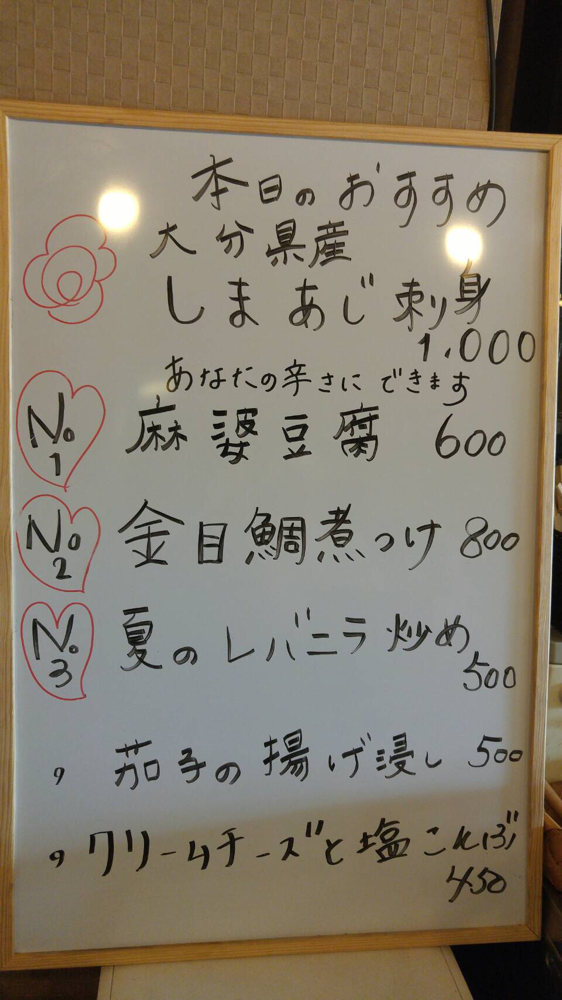 本日のおすすめ
大分県産
しまあじ刺身
1,000
あなたの辛さにできます
No1 麻婆豆腐 600
No2 金目鯛煮つけ 800
No.3 夏のレバニラ炒め
500
, 茄子の揚げ浸し 500
, クリームチーズと塩こんぶ
450